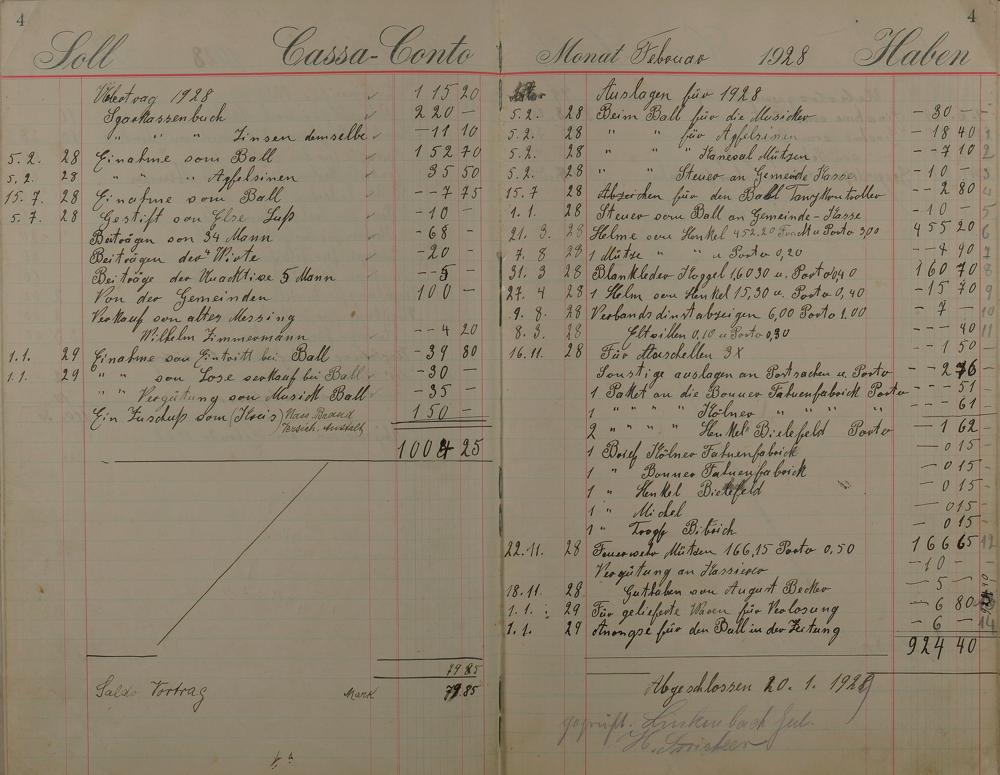 4
Soll Cassa-Conto
Übertrag 1928 1 15 20
Sparkassenbuch 2 20 —
" " " Zinsen demselbe — 11 10
5. 2. 28 Einahme vom Ball 1 52 70
5. 2. 28 " " " Apfelsinen 35 50
15. 7. 28 Einahme vom Ball — — 7 75
5. 7. 28 Gestift von Else — 10 —
Beiträgen von 34 Mann — 68 —
Beiträgen der Wirte — 20 —
Beiträge der 5 Mann — — 5 —
Von der Gemeinden 1 00 —
Verkauf von altes Messing
Wilhelm Zimmermann — — 4 20
1. 1. 29 Einahme von Eintritt bei Ball — 39 80
1. 1. 29 " " von Lose verkauf bei Ball — 30 —
" " Vergütung von Musick Ball — 35 —
Ein Zuschuß vom (Kreis) Nass. Brand 1 50 —
Versich. Anstalt
1004 25
79 85
Saldo Vortrag Mark 79.85
4
Monat Februar 1928 Haben
Auslagen für 1928
5. 2. 28 Beim Ball für die Musicker — 30 — —
5. 2. 28 " " für Apfelsinen — 18 40 1
5. 2. 28 " " " Kaneval Mützen — — 7 10 2
5. 2. 28 " " Steuer an Gemeinde Kasse — 10 — 3
15. 7 28 Abzeichen für den Ball Tanzkontroller — — 2 80 4
1. 1. 28 Steuer vom Ball an Gemeinde-Kasse — 10 — 5
21. 3. 28 Helme von Henkel 452,20 Fracht u Porto 3,00 4 55 20 6
7. 8 28 1 Mütze " " u Porto 0,20 — — 4 40 7
31. 3 28 Blankleder Hoggel 160 30 u. Porto 0,40 1 60 70 8
27. 4 28 1 Helm von Henkel 15,30 u. Porto 0,40 — 15 70 9
9. 8. 28 Verbands dinstabzeigen 6,00 Porto 1.00 — 7 — 10
8. 3. 28 0,10 u Porto 0,30 — — 40 11
16. 11. 28 Für 3 X — — 1 50
Sonstige auslagen an Portsachen u. Porto — — 2 76
1 Paket an die Bonner Fahnenfabrick Porto — — 51
1 " " " " Kölner " " " " — — 61
2 " " " " Henkel Bielefeld Porto — 1 62
1 Brief Kölner Fahnenfabrick — 0 15
1 " Bonner Fahnenfabrick — 0 15
1 " Henkel Bielefeld — 0 15
1 " Michel — 0 15
1 " Tropp Bitrich — 0 15
22. 11. 28 Feuerwehr Mützen 166,15 Porto 0,50 1 66 65 12
Vergütung an Kassierer — 10 —
18. 11. 28 Guthaben von August Becker — 5 —
1. 1. : 29 Für gelieferte Waren für Verlosung — 6 80
1. 1. 29 Anongse für den Ball in der Zeitung — 6 — 14
924 40
Abgeschlossen 20. 1. 1929
geprüft.